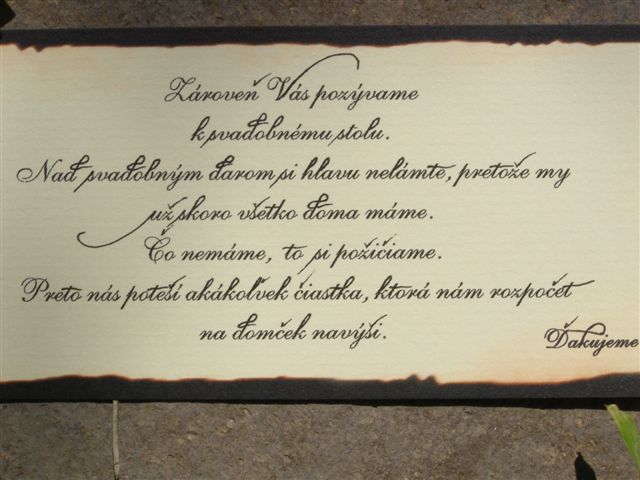 Zároveň Vás pozývame
k svadobnému stolu.
Nad svadobným darom si hlavu nelámte, pretože my
už skoro všetko doma máme.
Čo nemáme, to si požičiame.
Preto nás poteší akákoľvek čiastka, ktorá nám rozpočet
na domček navýši.
Ďakujeme